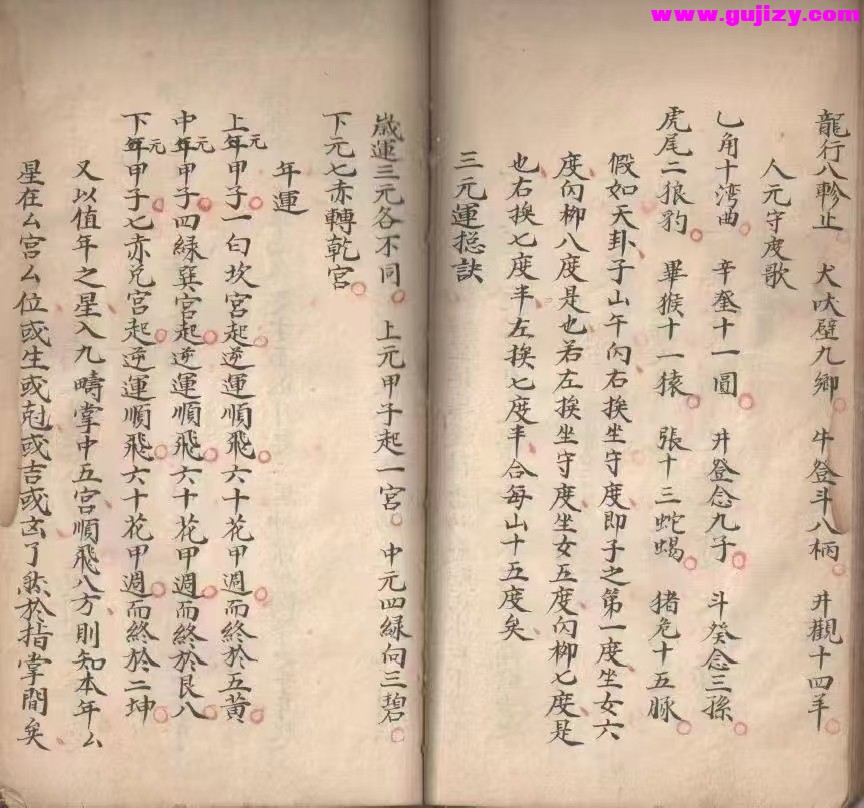 www.gujizy.com
龍行八軫止 犬吠壁九鄉 牛登斗八柄 井觀十四羊
人元守度歌
乚角十湾曲 辛奎十一圓 井登念九子 斗癸念三孫
虎尾二狼豹 畢猴十一猿 張十三蛇蝎 猪危十五豚
假如天卦子山午向右挨坐守度即子之第一度坐女六
度向柳八度是也若左挨坐守度坐女五度向柳七度是
也右挨七度半左挨七度半合每山十五度矣
三元運捴訣
歲運三元各不同 上元甲子起一宮 中元四綠向三碧
下元七赤轉乾宮
年運
上元年甲子一白坎宮起逆運順飛六十花甲週而終於五黃
中元年甲子四綠巽宮起逆運順飛六十花甲週而終於艮八
下元年甲子七赤兌宮起逆運順飛六十花甲週而終於二坤
又以值年之星入九疇掌中五宮順飛八方則知本年厶
星在厶宮厶位或生或尅或吉或凶了然於指掌間矣